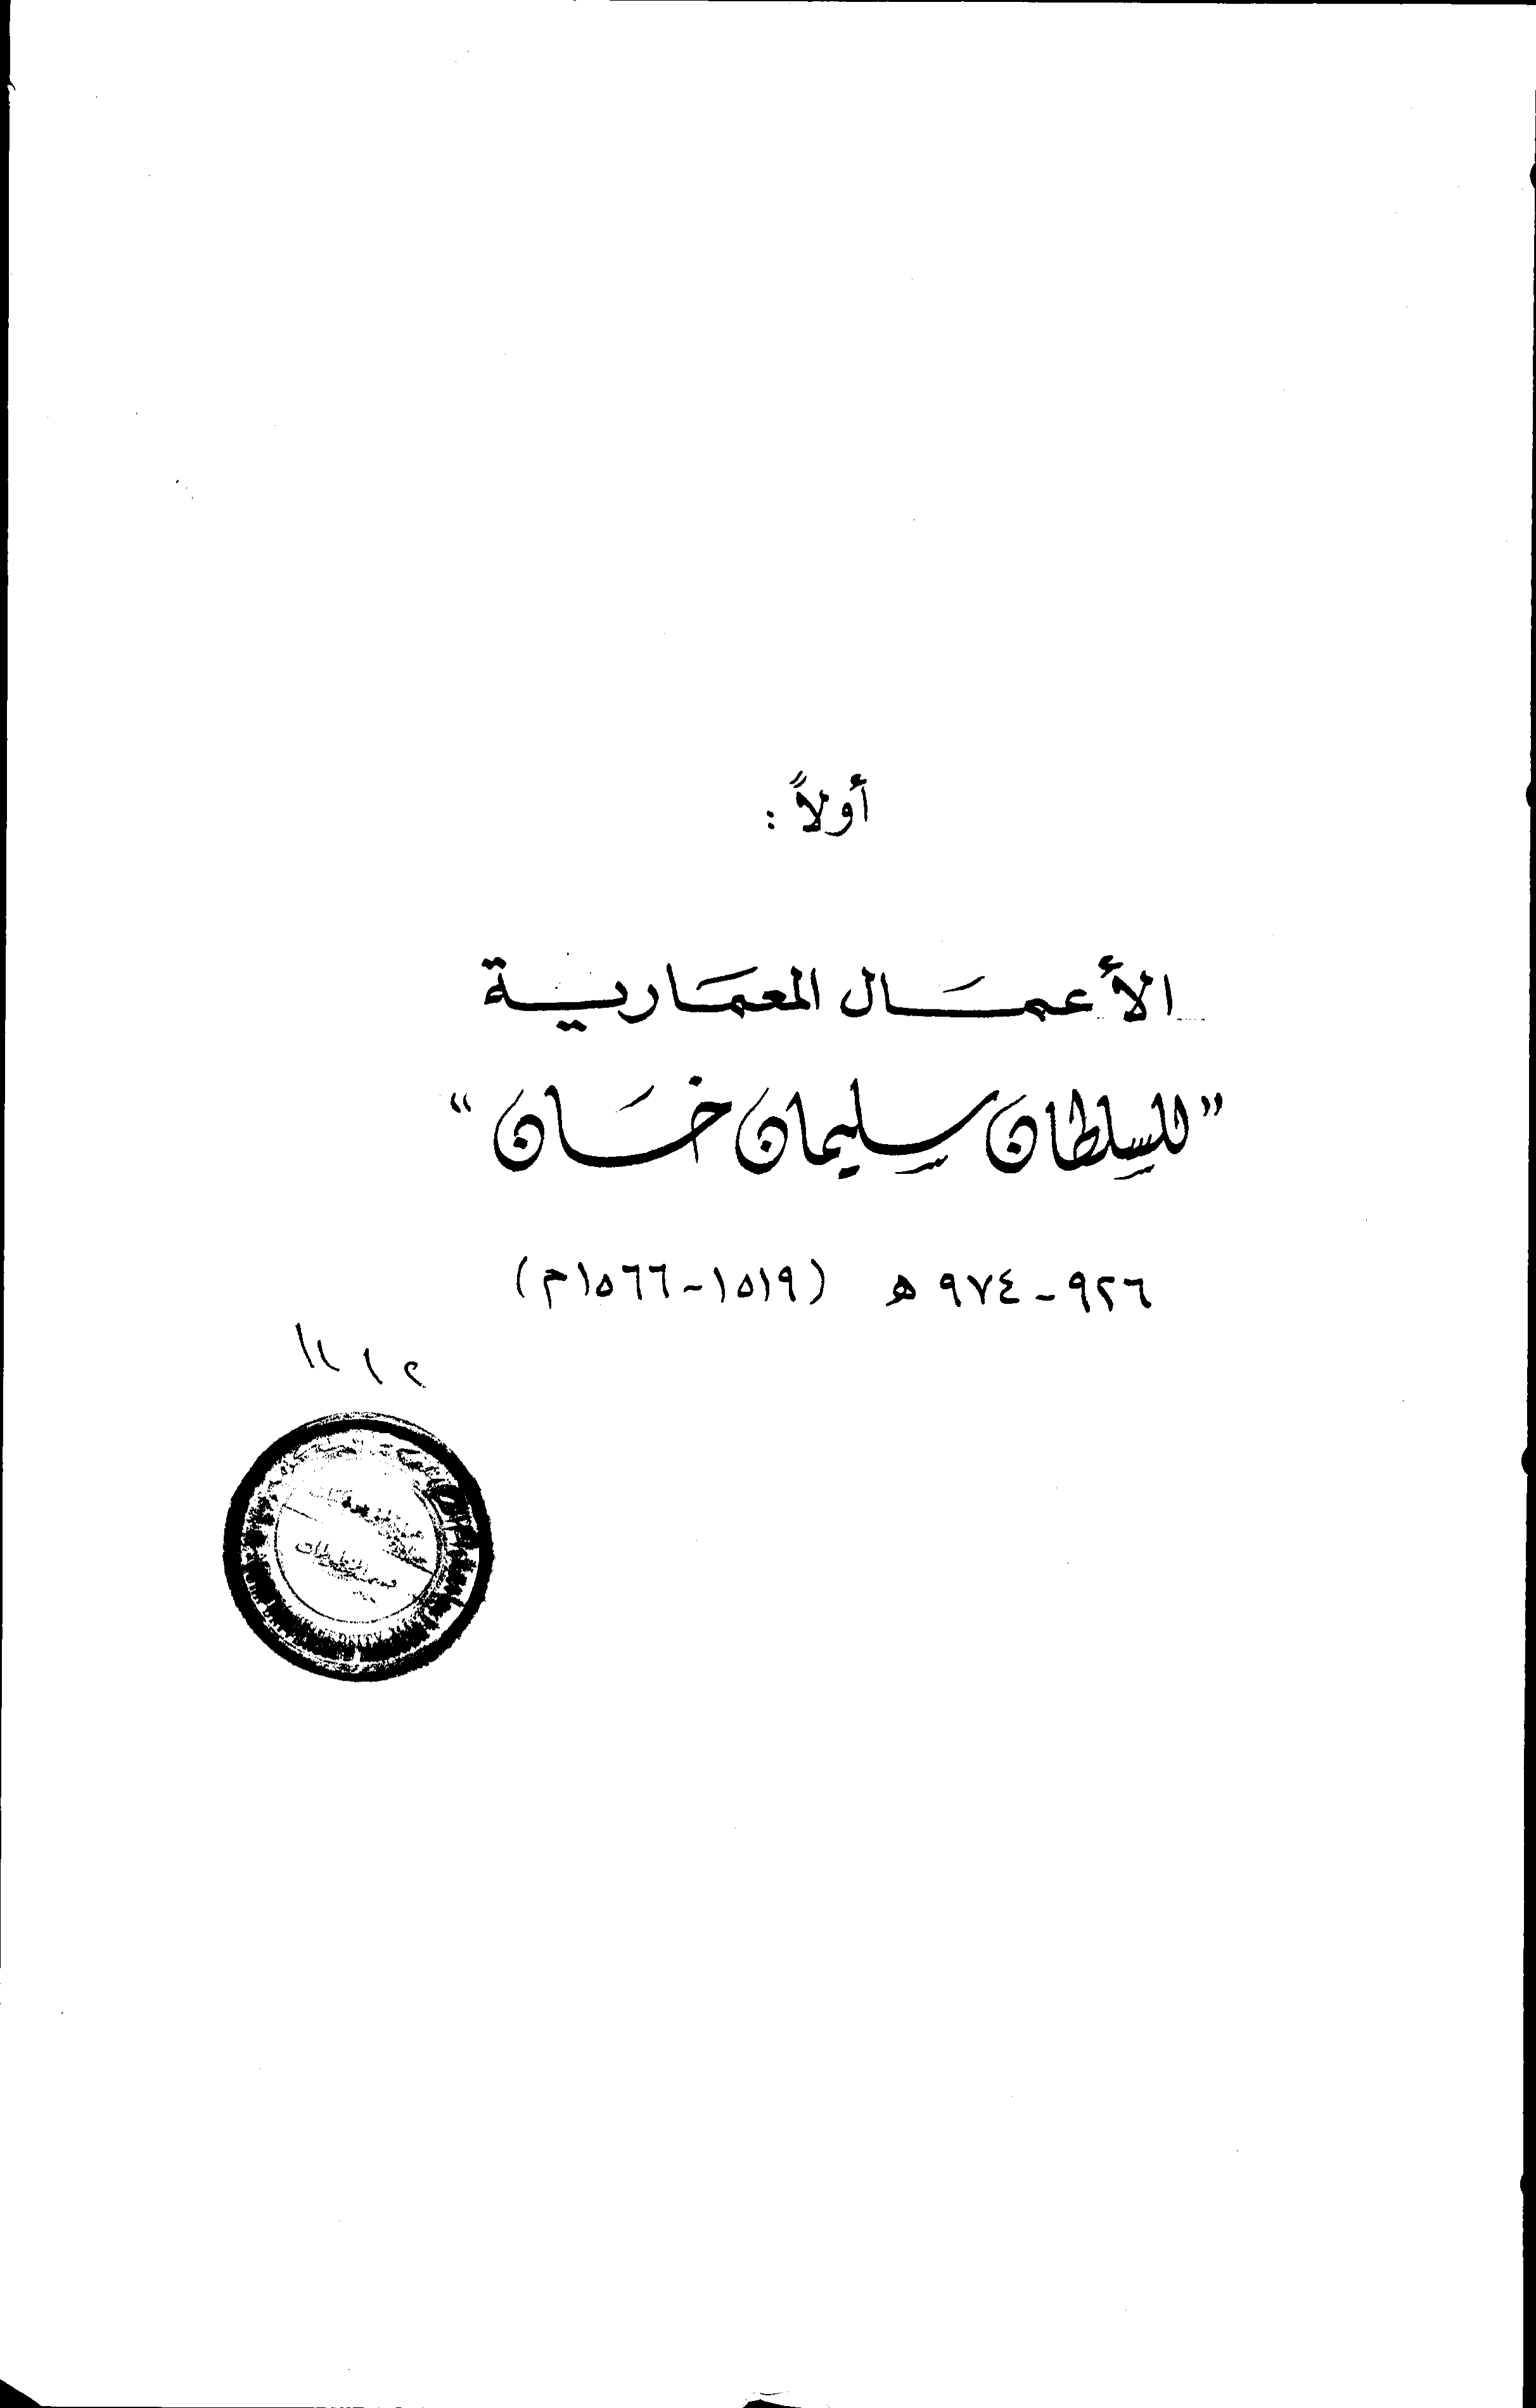 أولاً :
الأعمَال المعمَارية
"للسلطان سليمان خَان"
٩٢٦ - ٩٧٤ هـ (١٥١٩ - ١٥٦٦م)